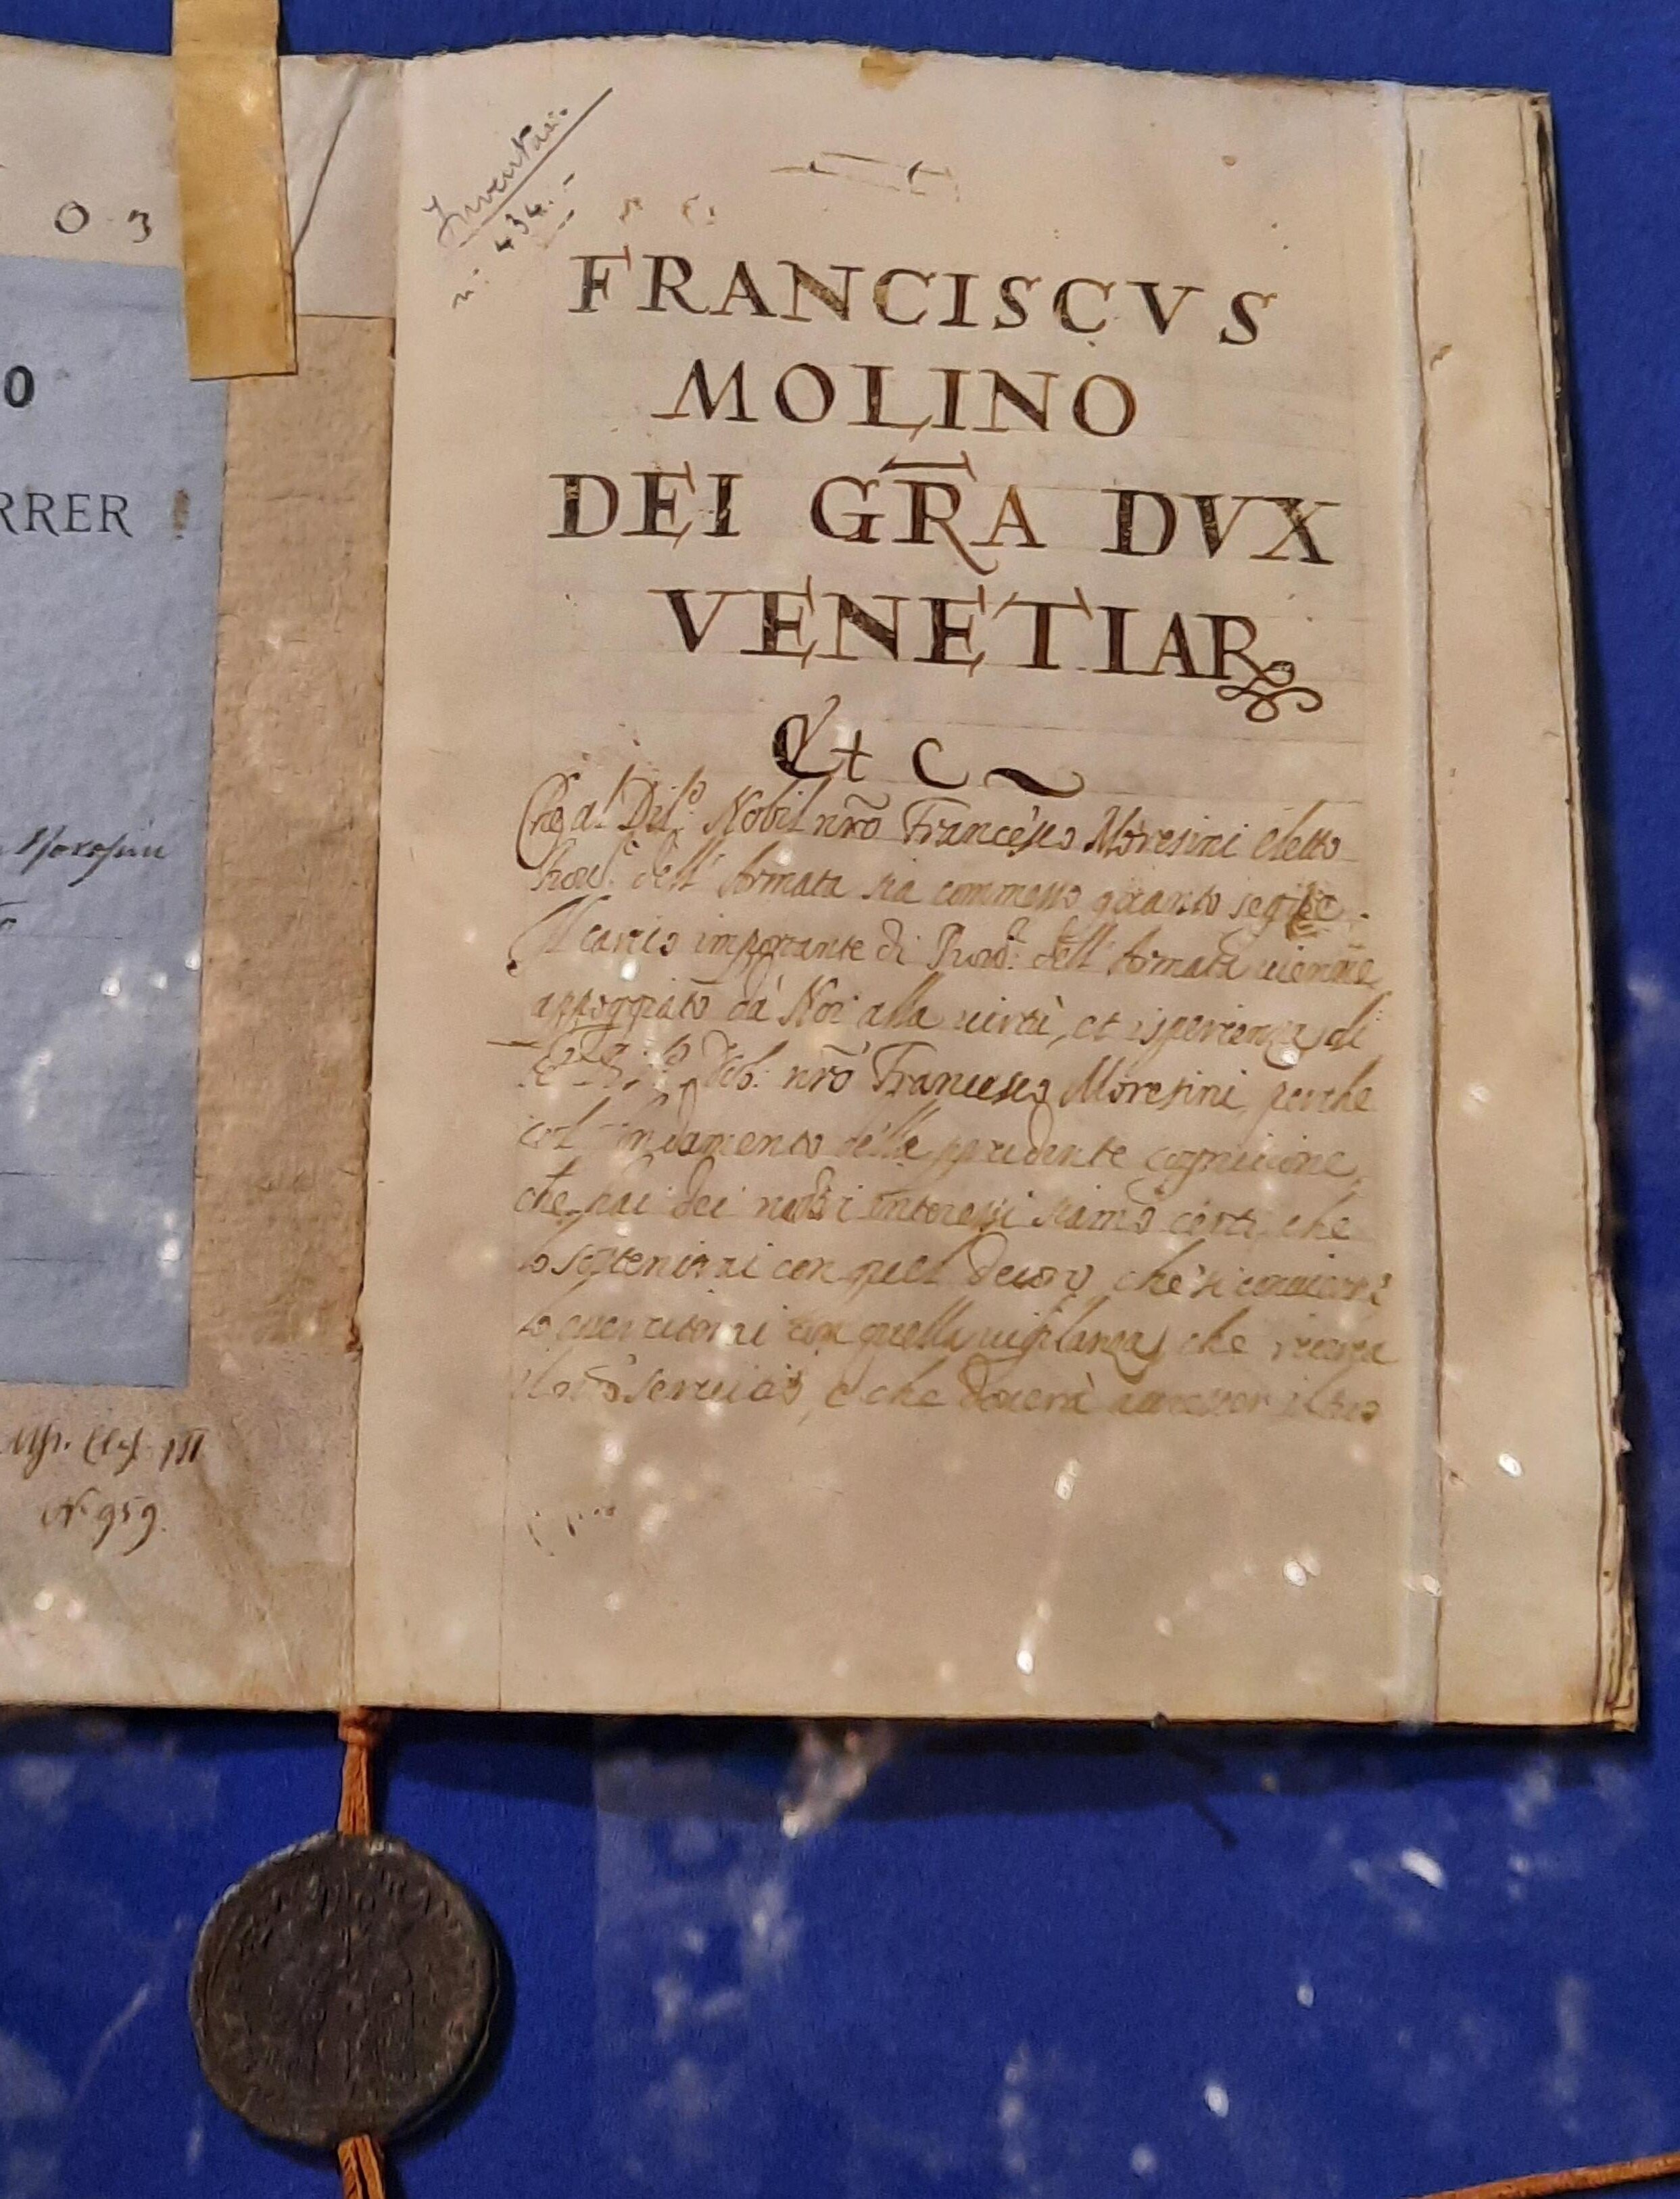 0 3
O
RRER
Morosini
Mss. Clas. III
N. 959.
Inventar.
n. 434.
FRANCISCVS
MOLINO
DEI GR̅A DVX
VENETIAR
Et C
Che al Dil.º Nobil nr̃o Francesco Moresini eletto
Prou.r dell' Armata sia commesso quanto segue.
Il carico importante di Prou.r dell' Armata uienne
appoggiato dà Noi alla uirtù, et isperienza di
nr̃o Francesco Moresini, perche
col fondamento della prudente cognitione,
che hai dei nostri interessi siamo certi, che
lo sostenirai con quel decoro, che si conuiene,
lo essercitarai con quella uigilanza, che ricerca
seruitio, e che douerà